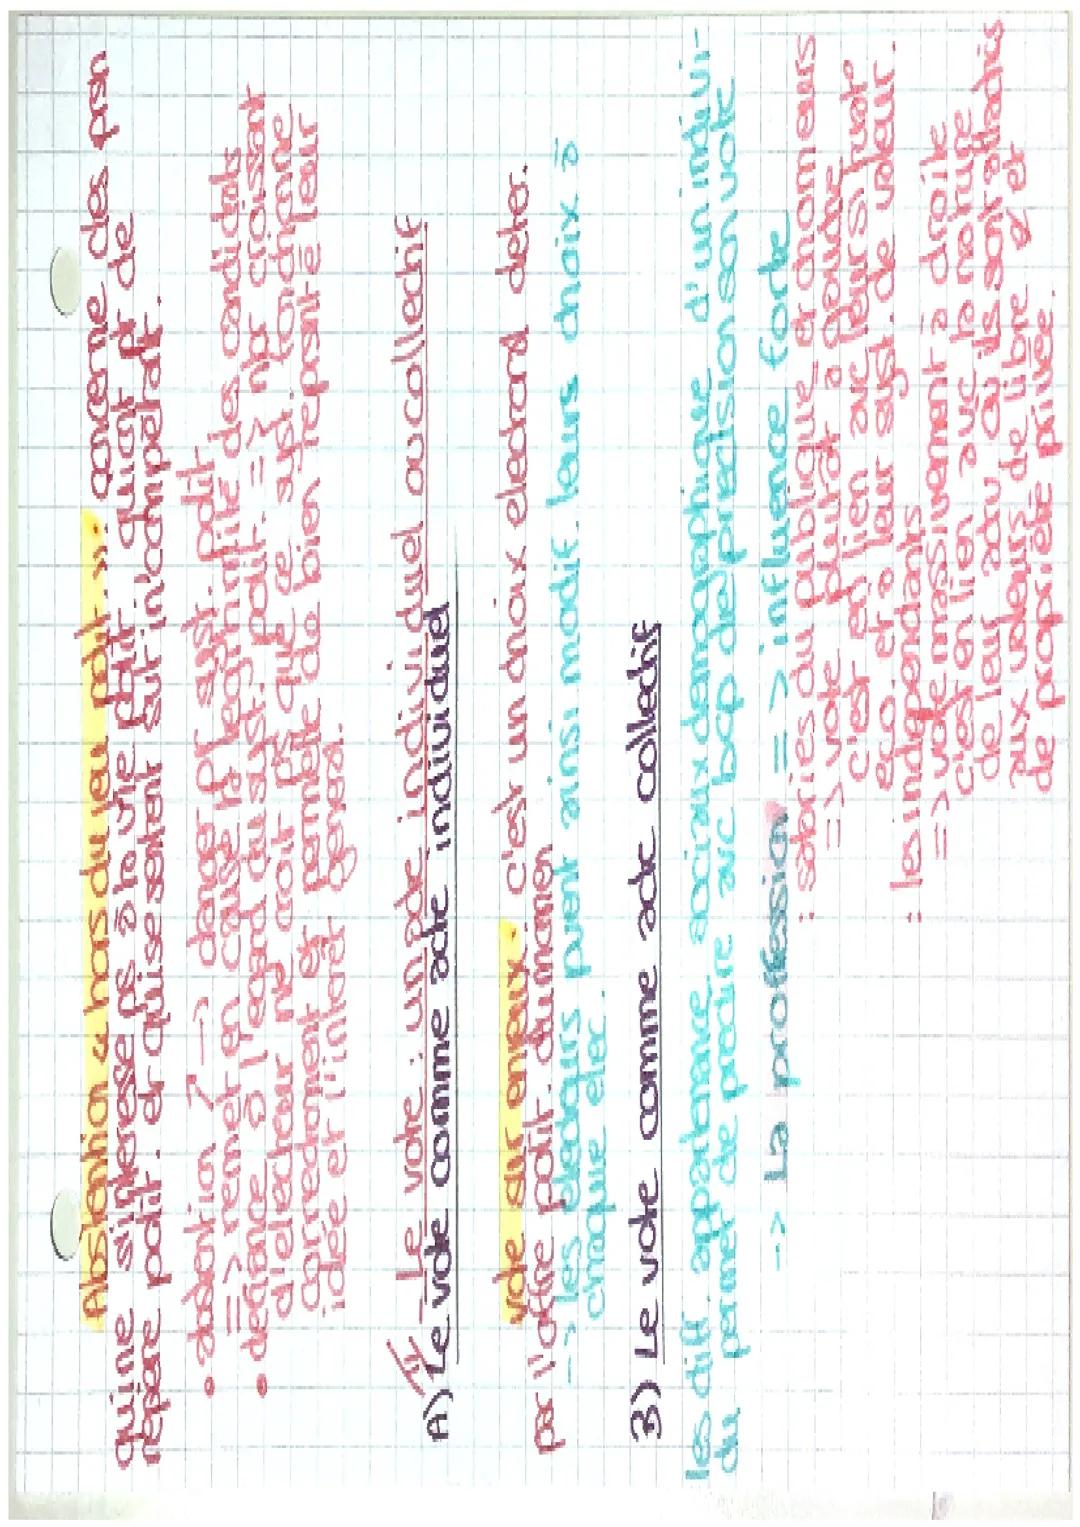 Abstention « hors du jeu polit. ». concerne des pers
qui ne s'interesse pas à la vie polit quiont pr de
repere polit. et qui se sentent st incompétat.
• abstention ↗ -> dang for syst. polit
=> remet en cause la legitimité des candidats
• defiance à l'egard du syst. polit. = > nb croissant
d'electeur ne croit pas que ce syst. fonctionne
correctement et permette de bien representé leur
idée et l'interet géneral.
II_ Le vote : un acte individuel ou collectif
A) Le vote comme acte individuel
vote sur enjeux. c'est un choix electoral deter.
par l'offre polit. du moment
-> les electeurs pvent ainsi modif. leurs choix à
chaque elec.
B) Le vote comme acte collectif
les diff. appartenance sociaux demographique d'un indivi-
du permet de predire avc bcp de precision son vote
-> La proffession => influence forte
: salariés du publique et chomeurs
=> vote plutôt à gauche
c'est en lien avc leurs) vote
eco. et à leur syst. de valeur.
: les independants
=> vote massivement à droite
c'est en lien avc la nature
de leur acv où ils sont attachés
aux valeurs de libre et
de proprieté privée.